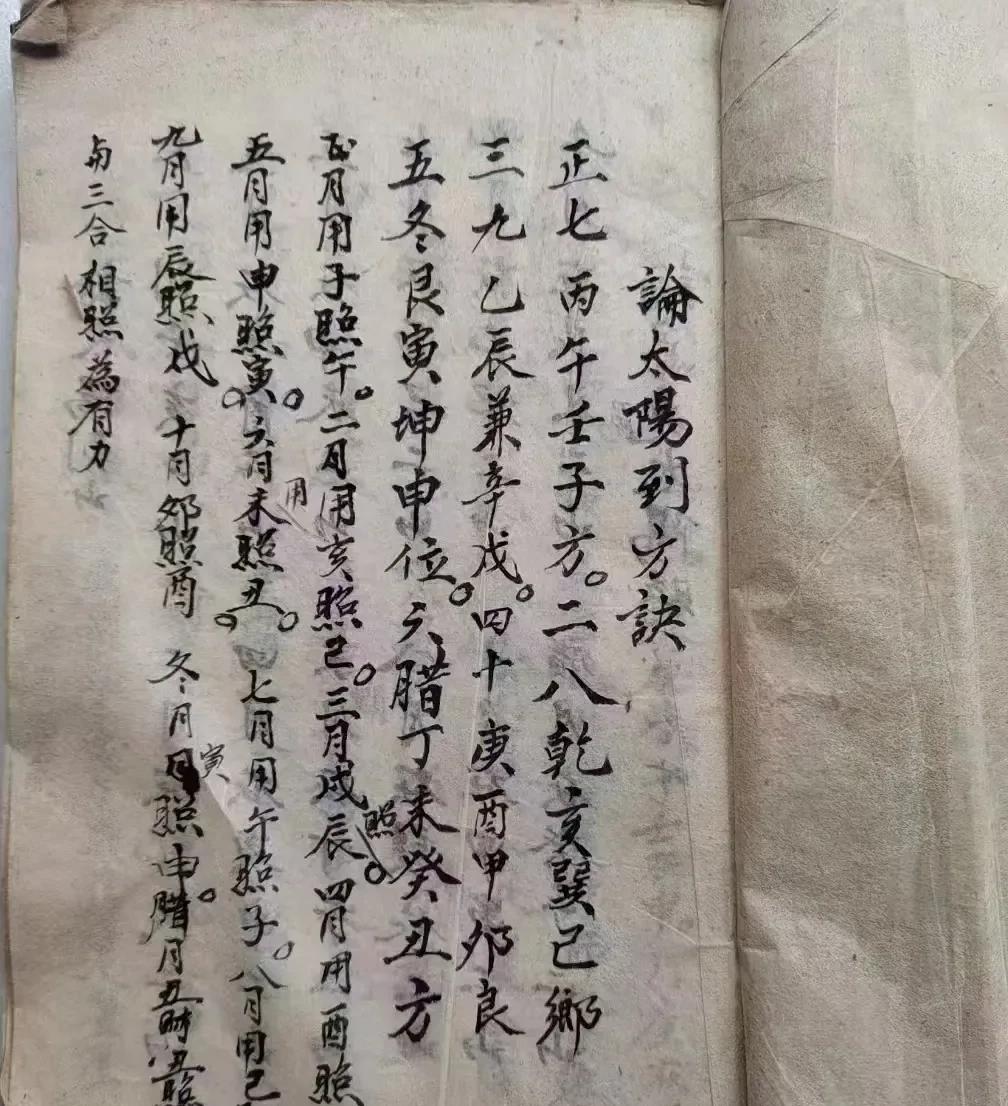 論太陽到方訣
正七丙午壬子方。二八乾亥巽巳鄉
三九乙辰兼辛戌。四十庚酉甲卯良
五冬艮寅坤申位。六腊丁未癸丑方
正月用子照午。二月用亥照巳。三月戍照辰。四月用酉照
五月用申照寅。六月用未照丑。七月用午照子。八月用巳
九月用辰照戍 十月卯照酉 冬月寅照申。腊月丑時丑照
与三合相照為有力